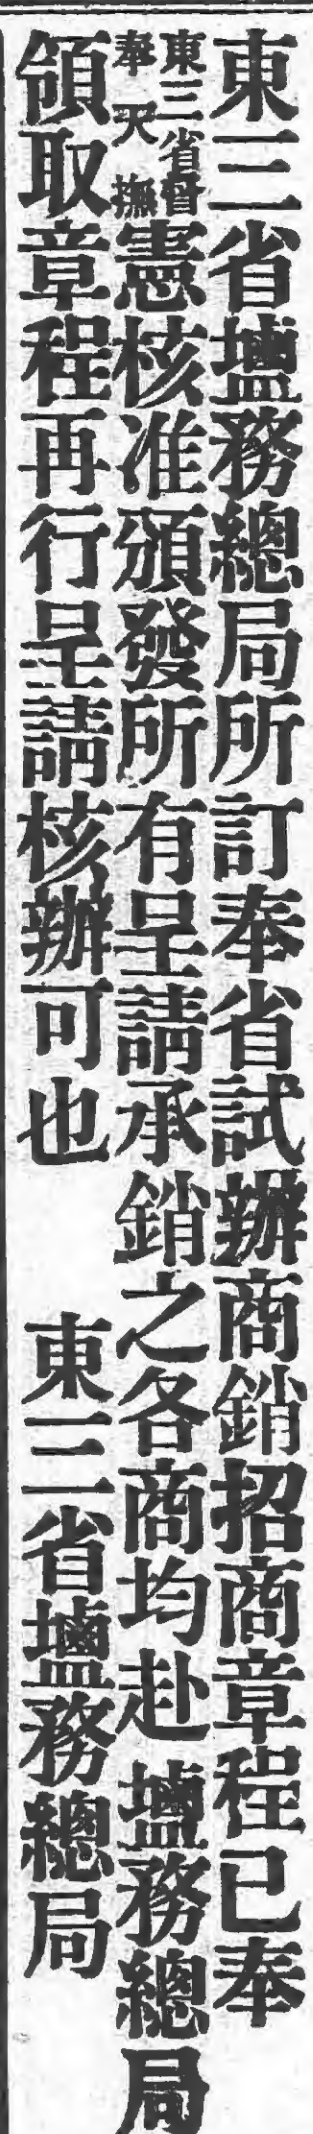 東三省鹽務總局所訂奉省試辦商銷招商章程已奉
東三省督
奉天撫
憲核准頒發所有呈請承銷之各商均赴鹽務總局
領取章程再行呈請核辦可也　東三省鹽務總局